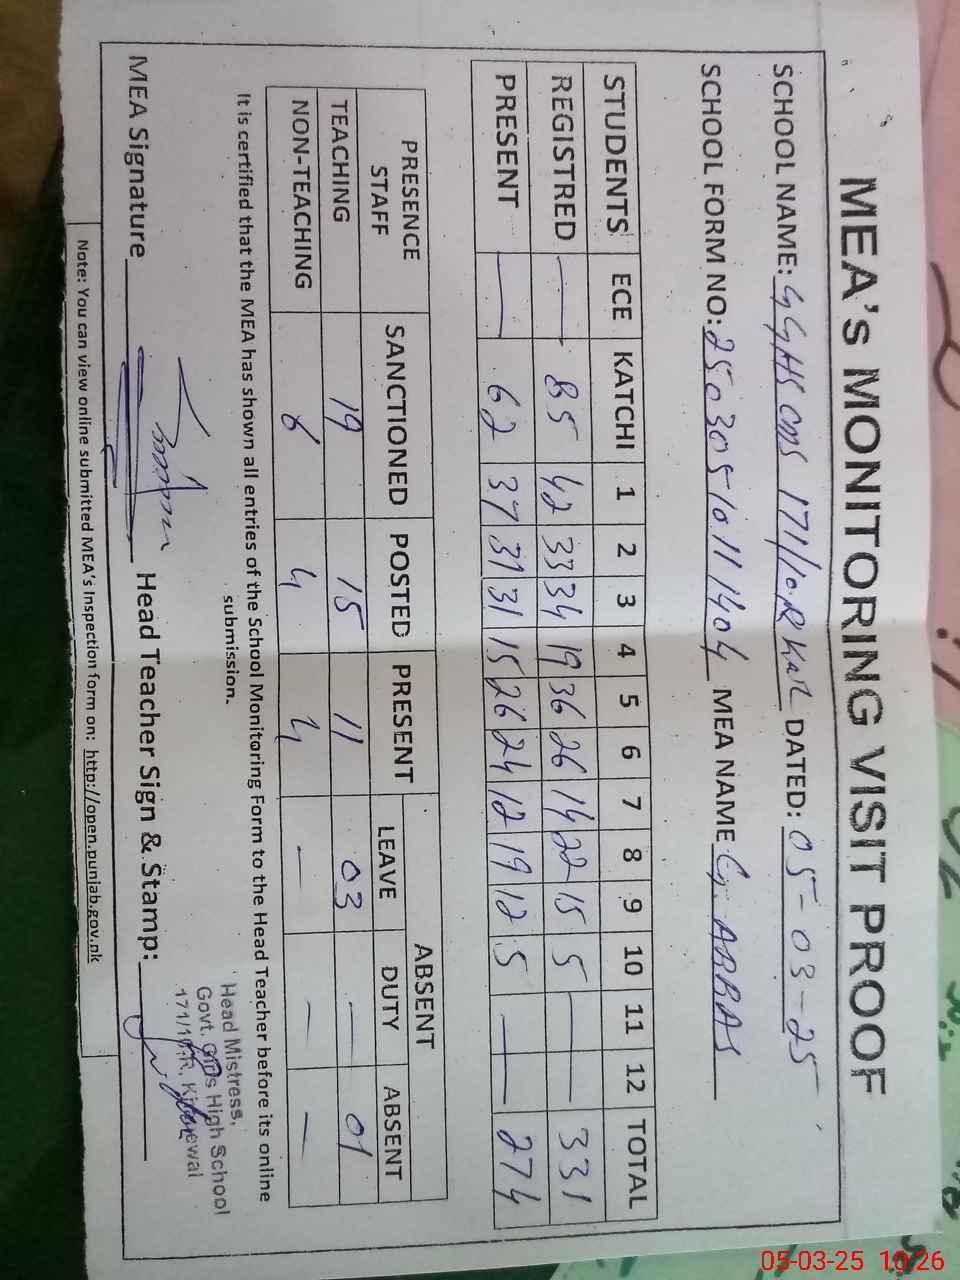 MEA's MONITORING VISIT PROOF
SCHOOL NAME: GGHS CMS 171/10.R KWL DATED: 05-03-25
SCHOOL FORM NO: 25030510111404 MEA NAME G. ABBAS
STUDENTS ECE KATCHI 1 2 3 4 5 6 7 8 9 10 11 12 TOTAL
REGISTRED — 85 42 33 34 19 36 26 14 22 15 5 — — 331
PRESENT — 62 37 31 31 15 26 24 12 19 12 5 — — 274
PRESENCE STAFF SANCTIONED POSTED PRESENT ABSENT
LEAVE DUTY ABSENT
TEACHING 19 15 11 03 — 01
NON-TEACHING 6 4 4 — — —
It is certified that the MEA has shown all entries of the School Monitoring Form to the Head Teacher before its online
submission.
Head Mistress,
Govt. Girls High School
171/10.R, Khanewal
MEA Signature Head Teacher Sign & Stamp:
Note: You can view online submitted MEA's Inspection form on: http://open.punjab.gov.pk
05-03-25 10:26